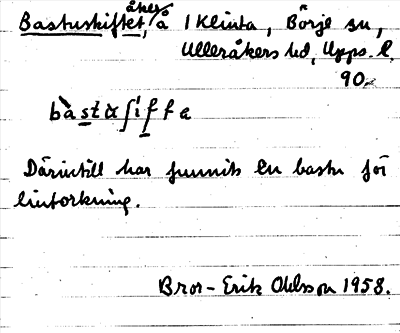 Bastuskiftet, åker, å 1 Klinta, Börje sn,
Ulleråkers hd, Upps. l.
90.
bàstɷʃìffa
Därintill har funnits en bastu för
lintorkning.
Bror-Erik Ohlsson 1958.